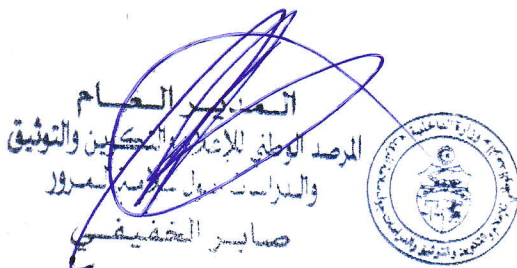 المدير العام
المرصد الوطني للإعلام والتكوين والتوثيق
والدراسات حول سلامة المرور
صابر الخفيفي